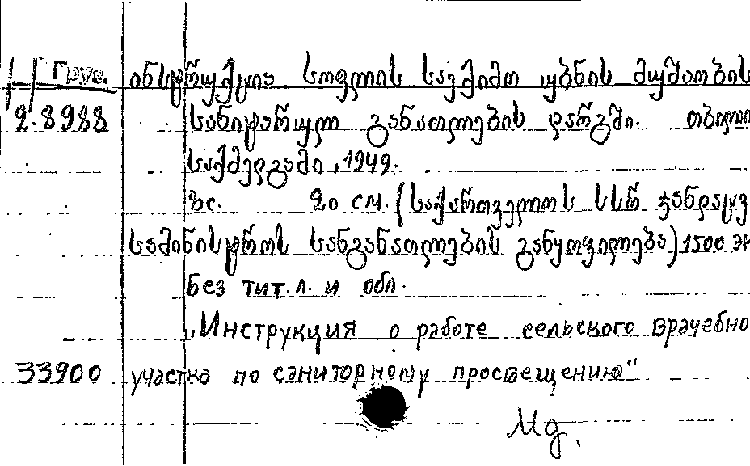 Груз. ინსტრუქცია სოფლის საექიმო უბნის მუშაობის
2.8988 სანიტარულ განათლების დარგში. თბილი
საქმედგამი, 1949.
8с. 20 см. (საქართველოს სსრ ჯანდაცვ
სამინისტროს სანგანათლების განყოფილება) 1500 эк
без тит. л. и обл.
„Инструкция о работе сельского врачебно
33900 участка по саниторному просвещению"
Мд.